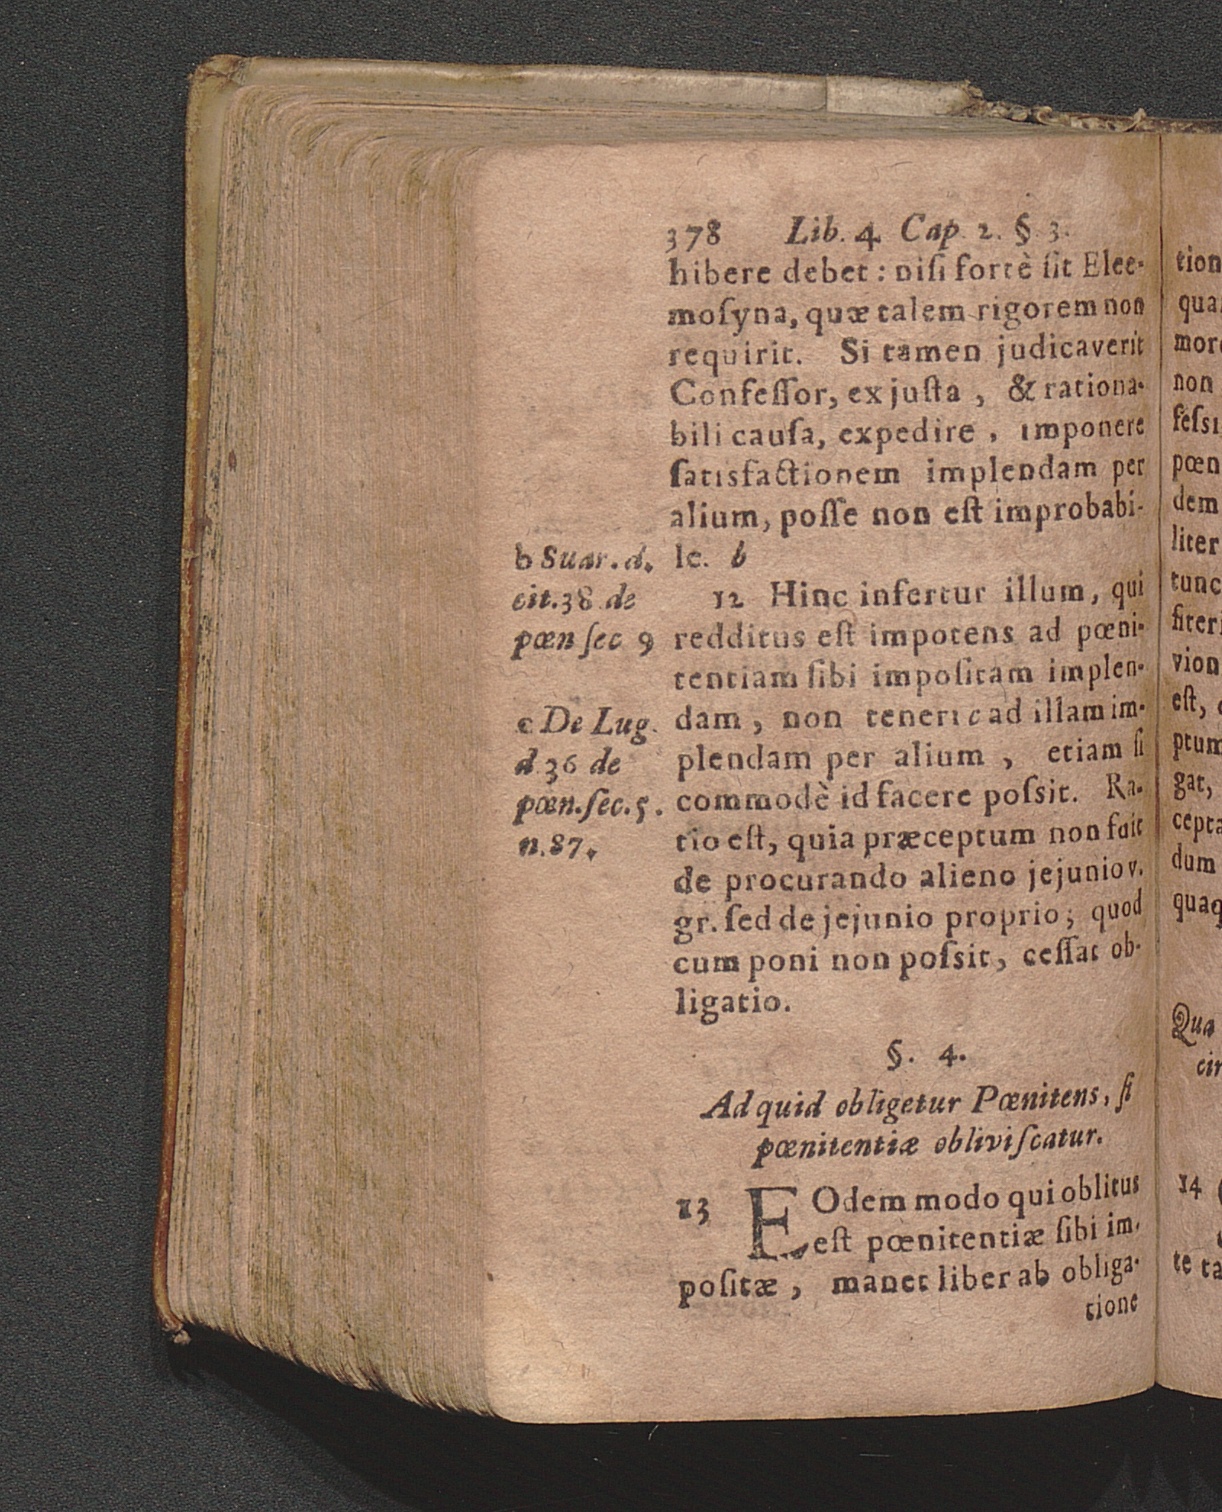 378 Lib. 4 Cap. 2. § 3.
hibere debet : niſi fortè ſit Elee-
moſyna, quæ talem rigorem non
requirit. Si tamen judicaverit
Confeſſor, ex juſta , & rationa-
bili cauſa, expedire , imponere
ſatisfactionem implendam per
alium, poſſe non eſt improbabi-
le. b
b Suar. d.
cit. 38 de
pœn ſec 9
12 Hinc infertur illum, qui
redditus eſt impotens ad pœni-
tentiam ſibi impoſitam implen-
dam , non teneri c ad illam im-
plendam per alium , etiam ſi
commodè id facere poſsit. Ra-
tio eſt, quia præceptum non fuit
de procurando alieno jejunio v.
gr. ſed de jejunio proprio; quod
cum poni non poſsit, ceſſat ob-
ligatio.
c De Lug.
d 36 de
pœn. ſec. 5.
n. 87.
§. 4.
Ad quid obligetur Pœnitens, ſi
pœnitentiæ obliviſcatur.
13 EOdem modo qui oblitus
eſt pœnitentiæ ſibi im-
poſitæ , manet liber ab obliga-
tione
tion
qua
mor
non
feſsi
pœn
dem
liter
tunc
fiteri
vion
eſt,
ptum
gat,
cepta
dum
quaq
Qua
cir
14
te ta